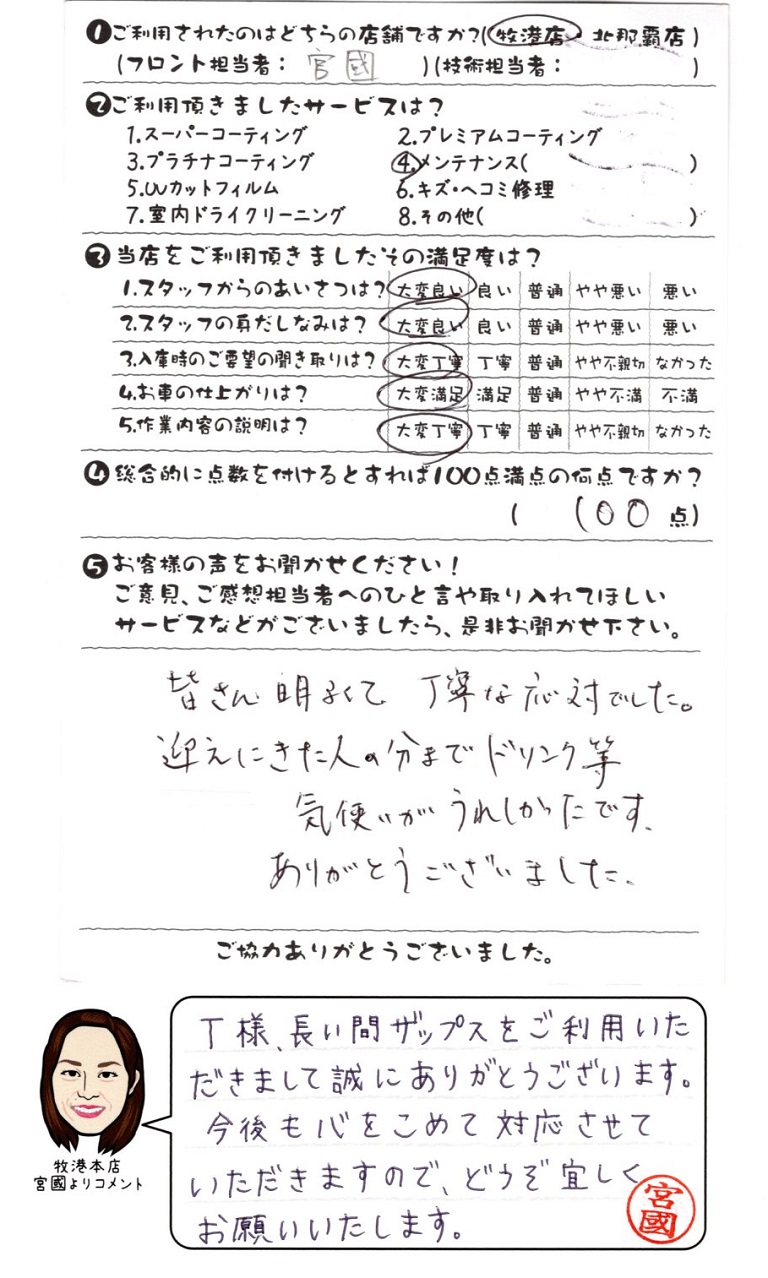 ❶ご利用されたのはどちらの店舗ですか?(牧港店・北那覇店)
(フロント担当者: 宮國 )(技術担当者: )
❷ご利用頂きましたサービスは?
1.スーパーコーティング 2.プレミアムコーティング
3.プラチナコーティング 4.メンテナンス( )
5.UVカットフィルム 6.キズ・ヘコミ修理
7.室内ドライクリーニング 8.その他( )
❸当店をご利用頂きましたその満足度は?
1.スタッフからのあいさつは? 大変良い 良い 普通 やや悪い 悪い
2.スタッフの身だしなみは? 大変良い 良い 普通 やや悪い 悪い
3.入庫時のご要望の聞き取りは? 大変丁寧 丁寧 普通 やや不親切 なかった
4.お車の仕上がりは? 大変満足 満足 普通 やや不満 不満
5.作業内容の説明は? 大変丁寧 丁寧 普通 やや不親切 なかった
❹総合的に点数を付けるとすれば100点満点の何点ですか?
( 100 点)
❺お客様の声をお聞かせください!
ご意見、ご感想担当者へのひと言や取り入れてほしい
サービスなどがございましたら、是非お聞かせ下さい。
皆さん明るくて 丁寧な応対でした。
迎えにきた人の分までドリンク等
気使いがうれしかったです、
ありがとうございました、
ご協力ありがとうございました。
T様、長い間ザップスをご利用いた
だきまして誠にありがとうございます。
今後も心をこめて対応させて
いただきますので、どうぞ宜しく
お願いいたします。
宮國
牧港本店
宮國よりコメント